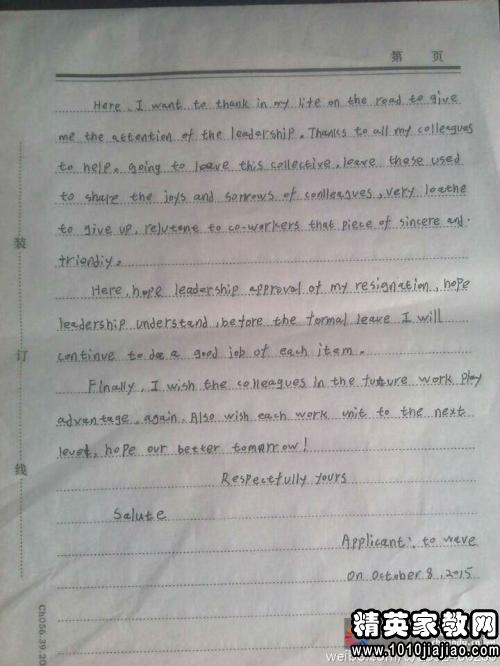 第 页
Here, I want to thank in my life on the road to give
me the attention of the leadership. Thanks to all my colleagues
to help. going to leave this collective, leave these used
to share the joys and sorrows of conlleagues, very loathe
to give up, relutone to co-workers that piece of sincere and
triendiy.
Here, hope leadership approval of my resignation, hope
leadership understand, before the formal leave I will
continue to do a good job of each item.
Finally, I wish the colleagues in the future work play
advantage, again. Also wish each work unit to the next
level, hope our better tomorrow!
Respectfully yours
Salute
Applicant: to wave
On October 8, 2015
装
订
线
Ch056.39.20
精英家教网
www.1010jiajiao.com